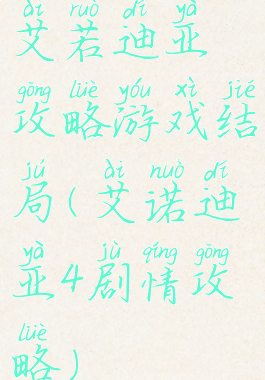 ài ruò dí yà
艾若迪亚
gōng lüè yóu xì jié
攻略游戏结
jú ài nuò dí
局(艾诺迪
yà jù qíng gōng
亚4剧情攻
lüè
略)